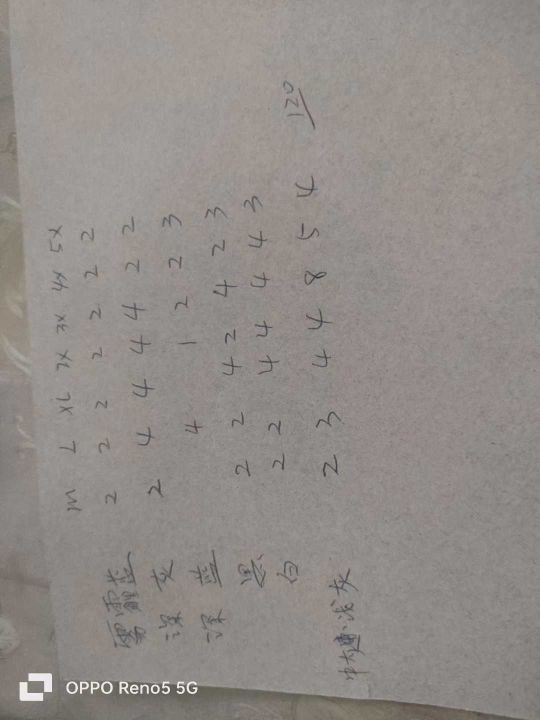 M L XL 2X 3X 4X 5X
雾霾蓝 2 2 2 2 2 2 2
深灰 2 4 4 4 4 2 2
深蓝 4 1 2 2 3
黑 2 2 4 2 4 2 3
白 2 2 4 4 4 4 3
浅灰 2 3 4 4 8 5 4
120
OPPO Reno5 5G